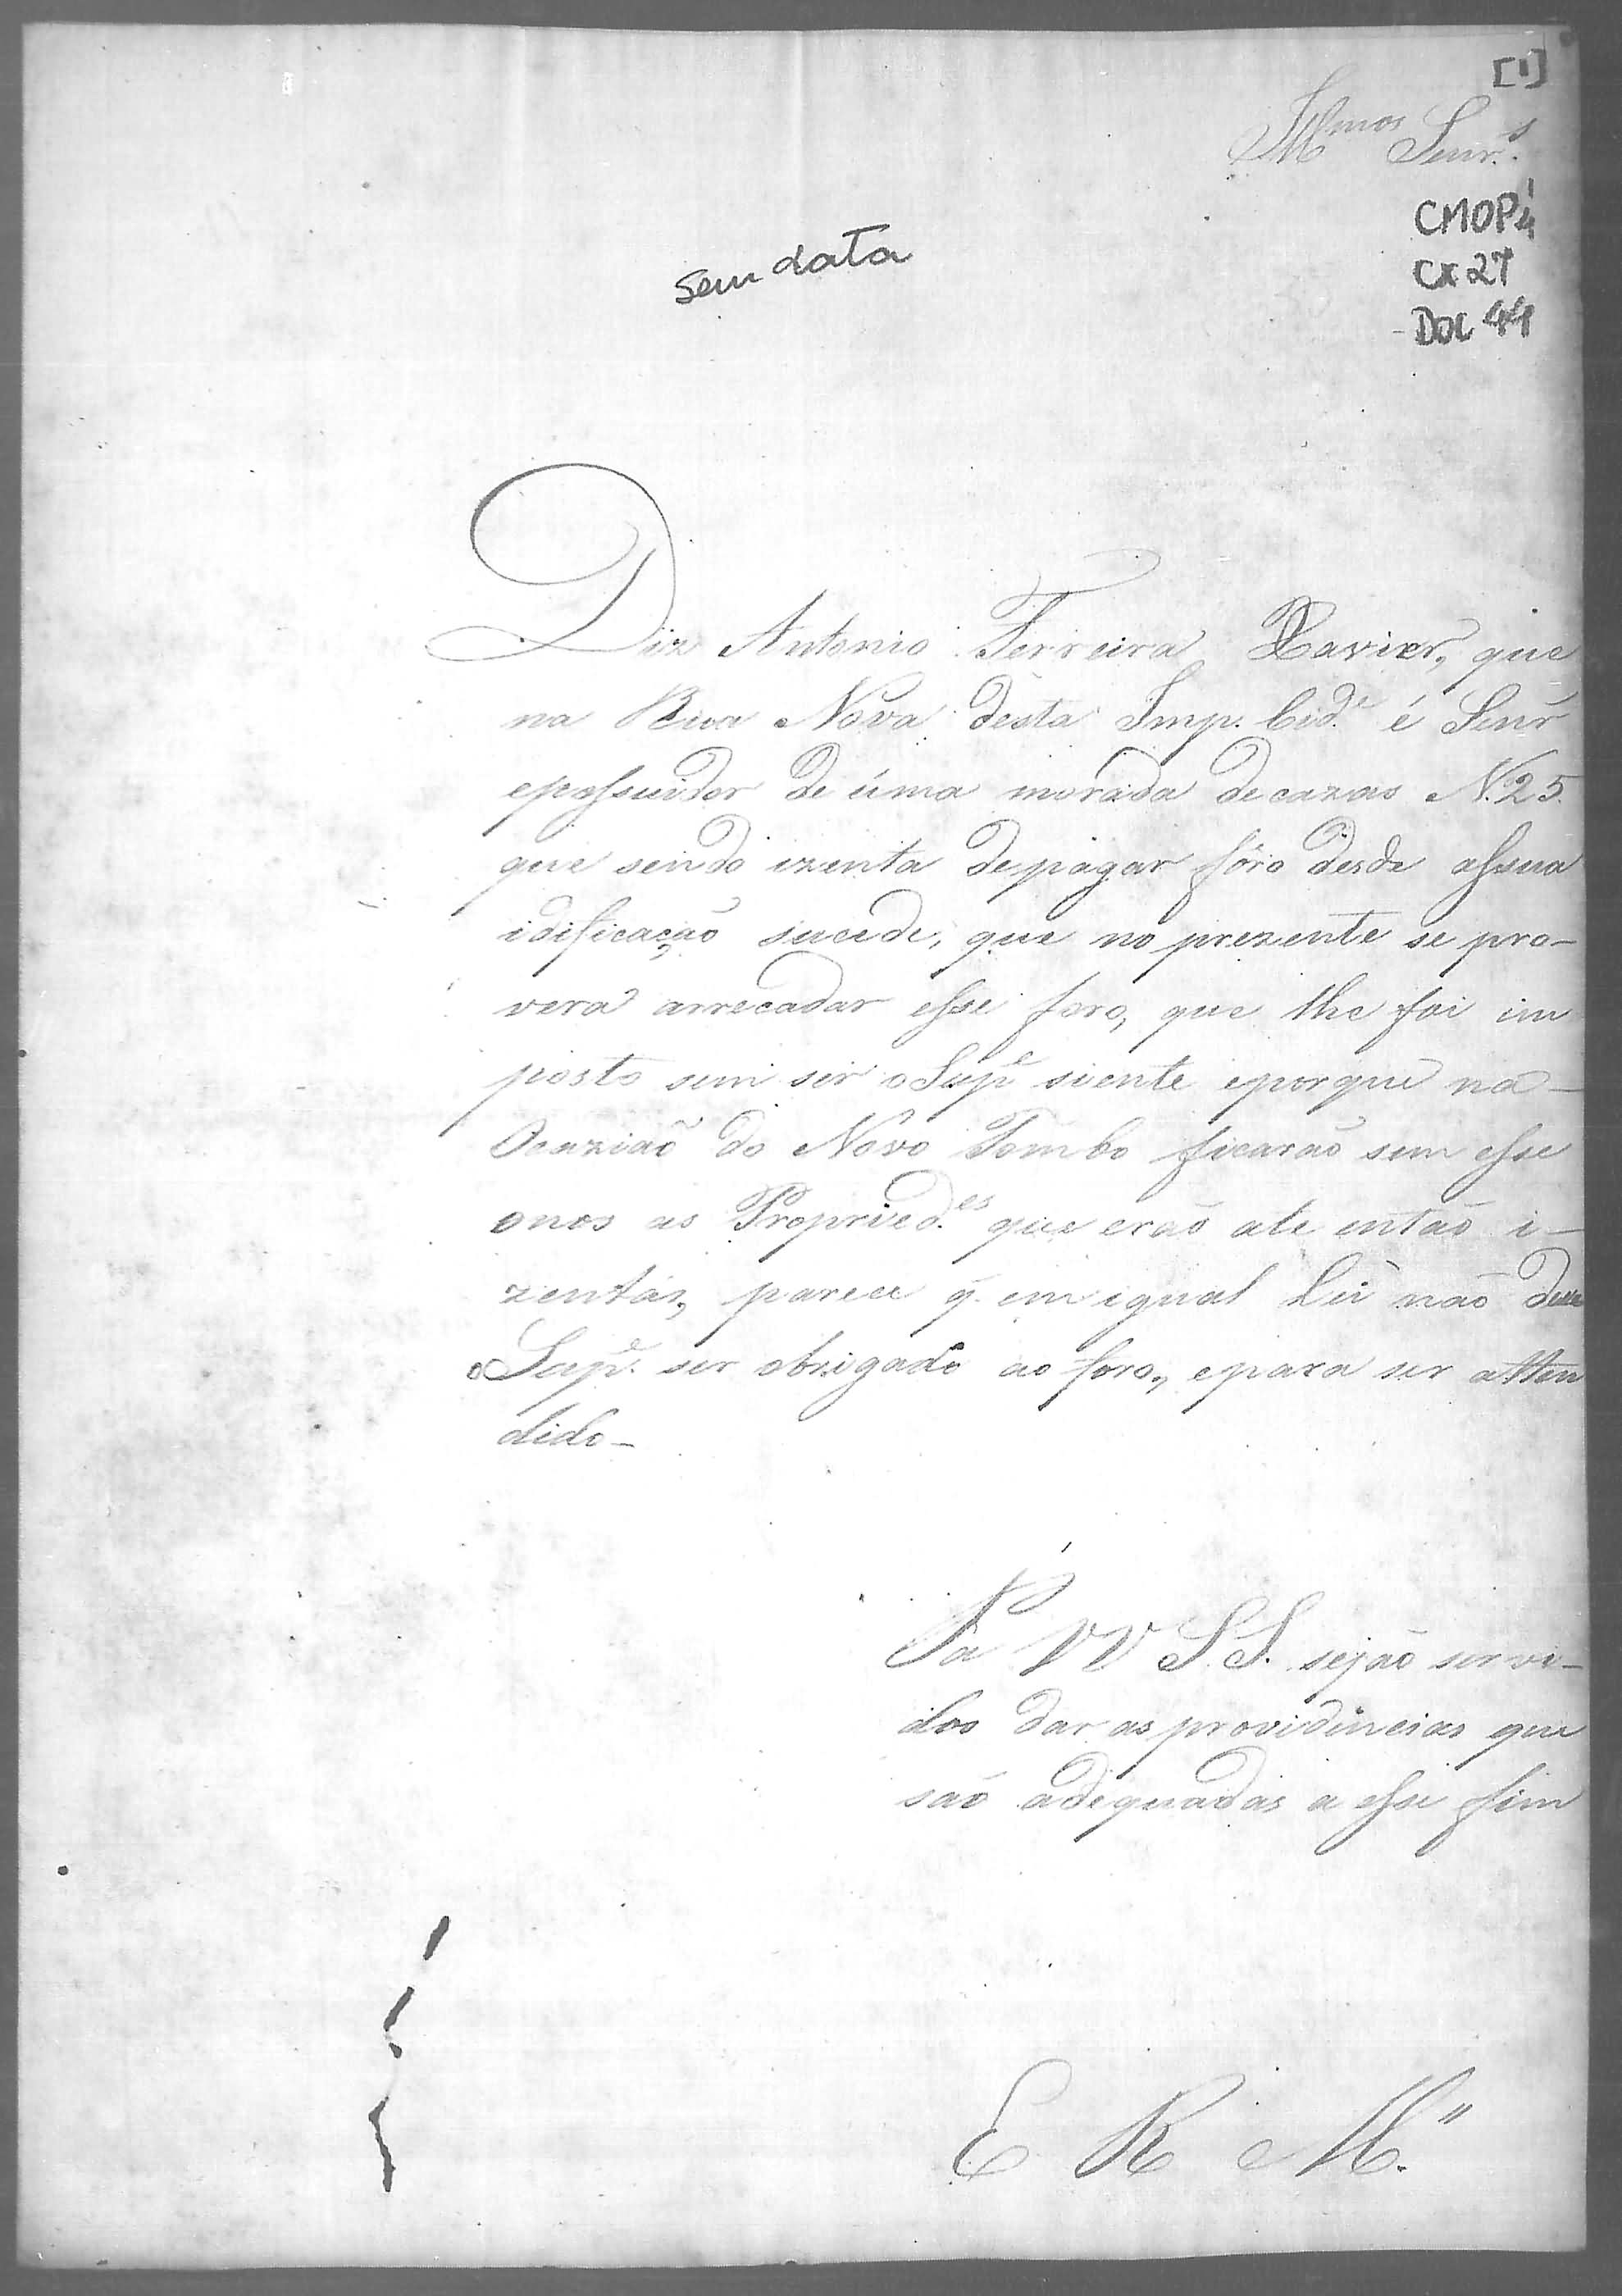 [1]
Illmos Senr.s
CMOP 1/4
CX 27
DOC 44
sem data
Diz Antonio Ferreira Xavier, que
na Rua Nova desta Imp. Cid.e é Senr
epossuidor de úma morada decazas N.25.
que sendo izenta depagar fôro desde assua
idificação sucede, que no prezente se pro-
verá arrecadar esse foro, que lhe foi im
posto sem ser o Sup.e siente eporque na-
Ocazião do Nôvo Tombo ficarão sem esse
onos as Propried.es que erão ate então i-
zentas, parece q. em igual Lei não deve
o Sup.e ser obrigado ao foro, epara ser atten
dido-
Pa VV S.S. sejão servi-
dos dar as providencias que
são adequadas a esse fim
E R M.